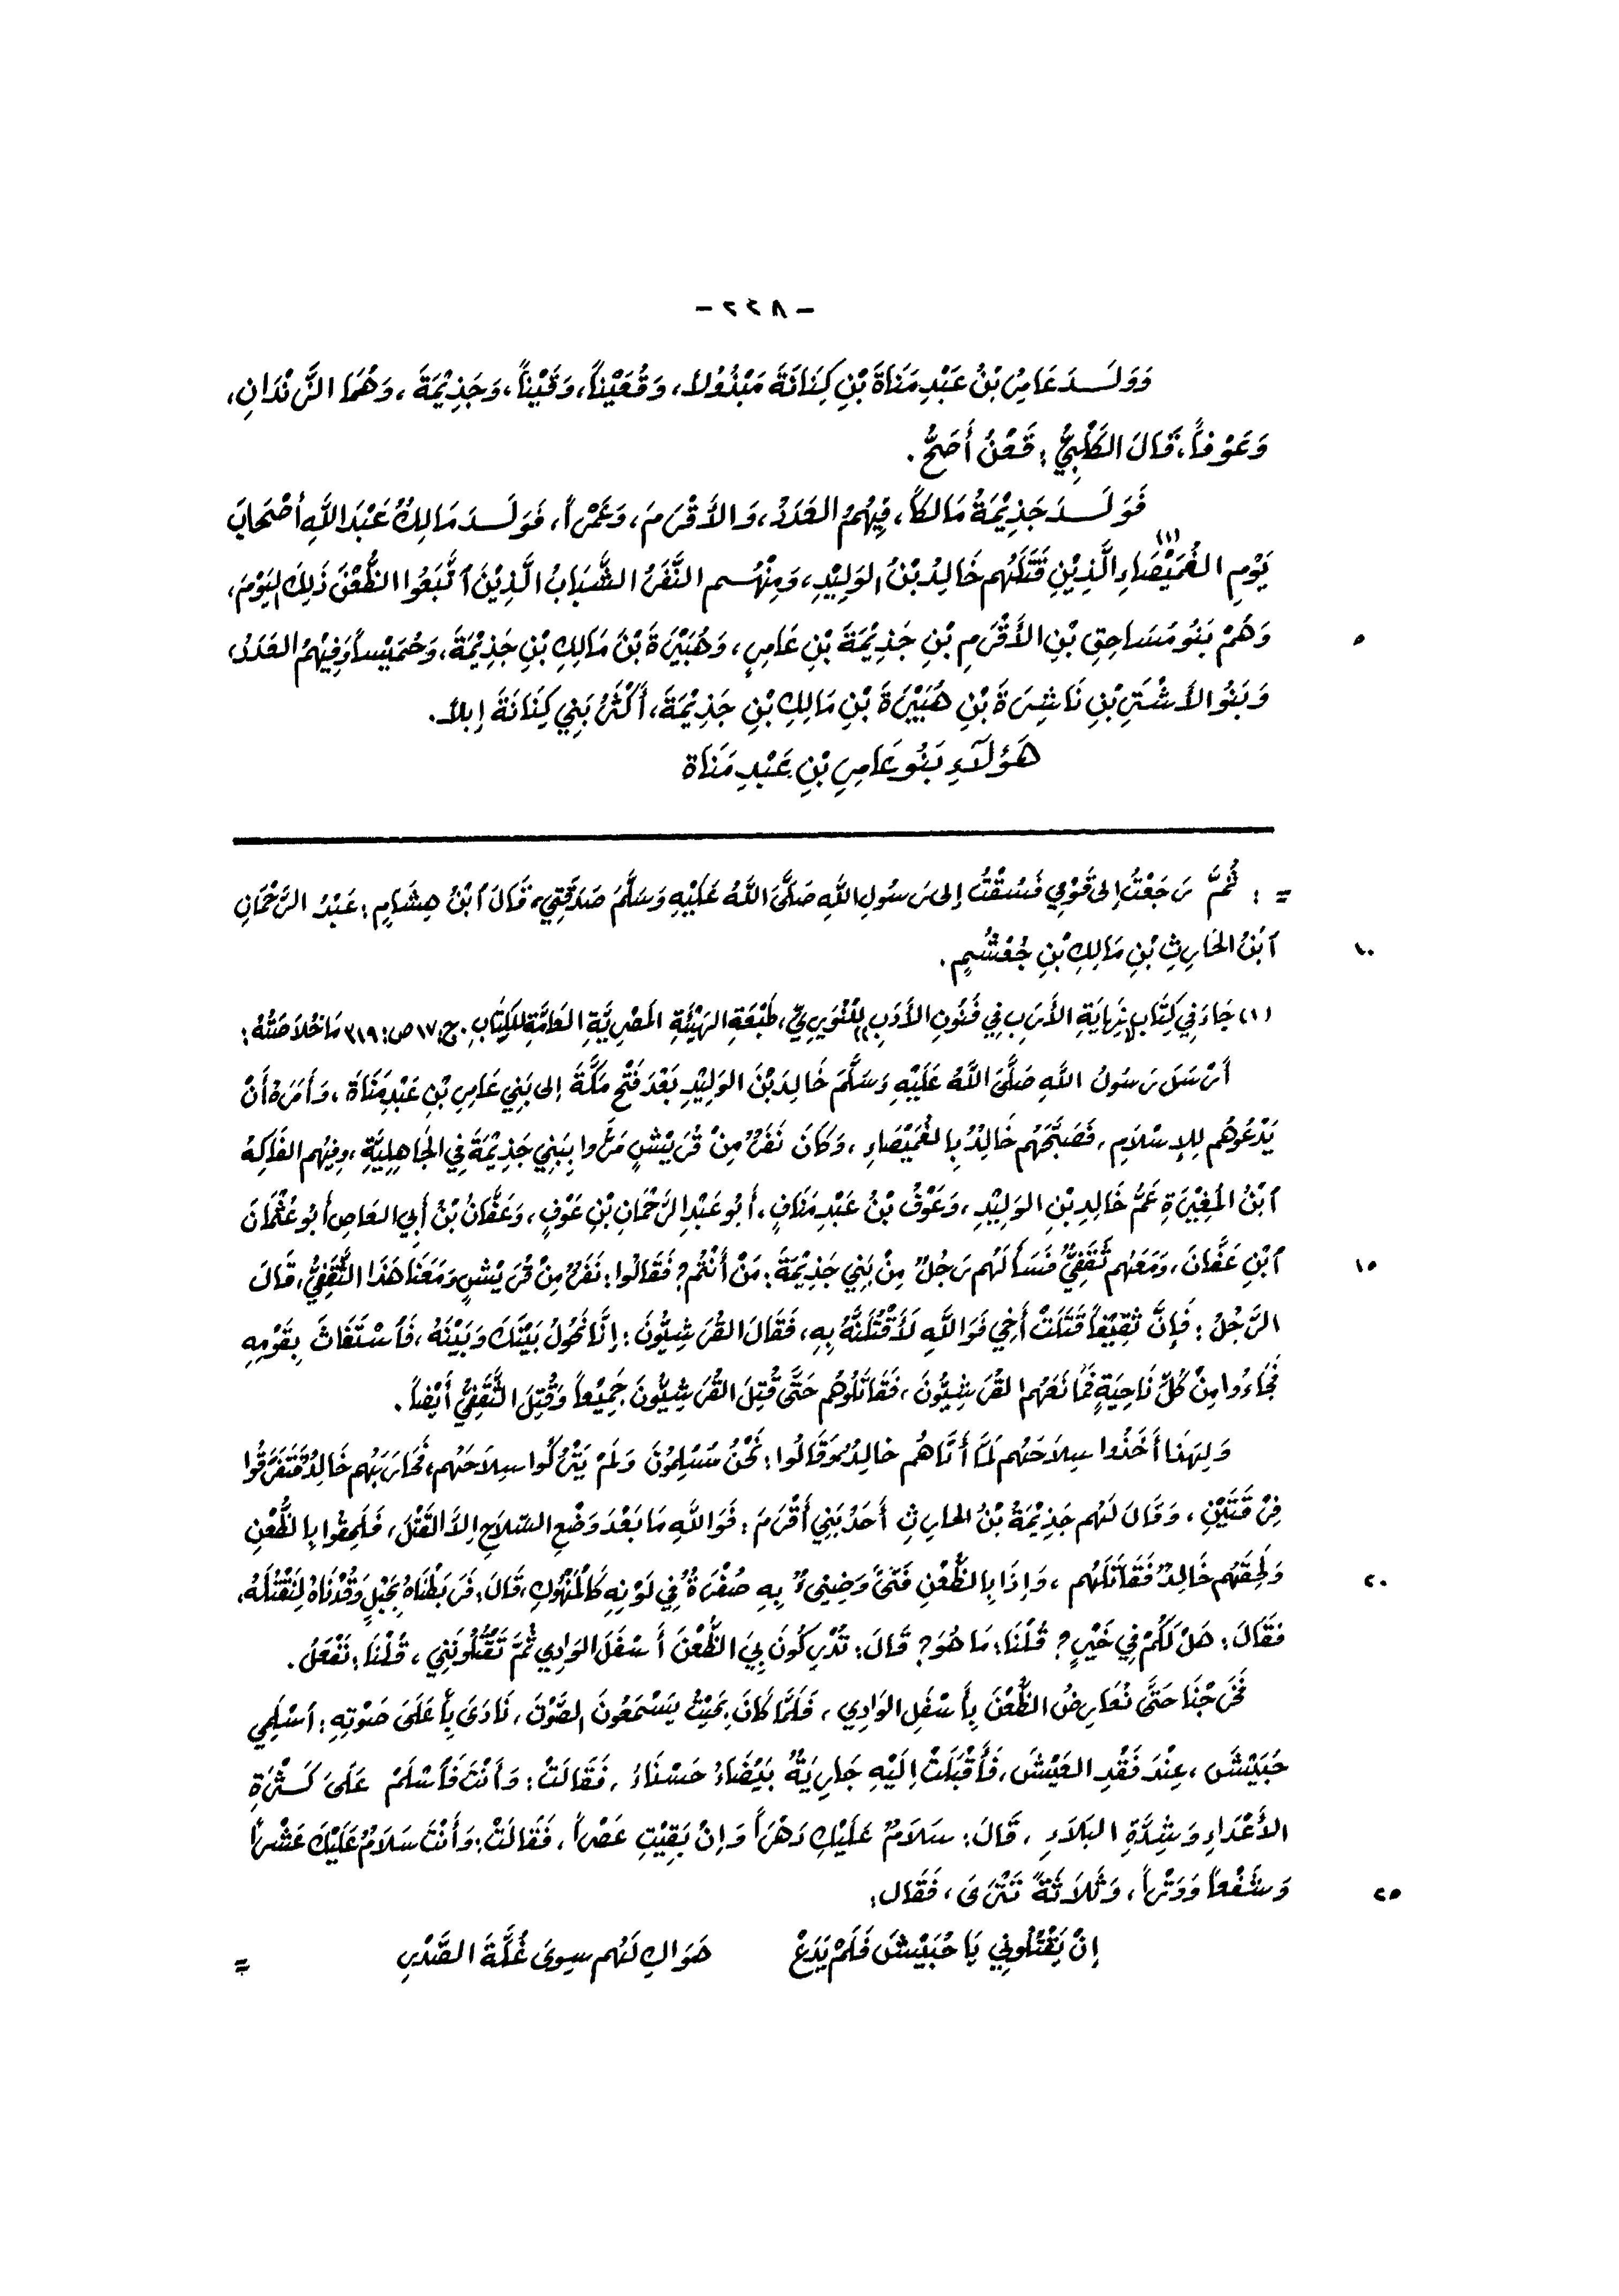 - ٢٢٨ -
وَوَلَــدَ عَامِرُ بْنُ عَبْدِ مَنَاةَ بْنِ كِنَانَةَ مَبْذُولاً، وَقُعَيْناً، وَقَيْناً، وَجَذِيْمَةَ، وَهُمَا الزَّنْدَانِ،
وَعَوْفاً، قَالَ الكَلْبِيُّ: قَعْنُ أَصَحُّ.
فَوَلَــدَ جَذِيْمَةُ مَالكاً، فِيْهُمُ العَدَدُ، وَالأَقْرَمَ، وَعَمْراً، فَوَلَــدَ مَالِكُ عَبْدَ اللَّهِ أصْحَابَ
يَوْمِ الغُمَيْصَاءِ (١) الَّذِيْنِ قَتَلَهُم خَالِدُ بْنُ الوَلِيْدِ، وَمِنْهُــم النَّفَرُ الشَّبَابُ الَّذِيْنَ اتَّبَعُوا الظُّعْنَ ذَلِكَ اليَوْمَ،
وَهُمْ بَنُو مُسَاحِقِ بْنِ الأَقْرَمِ بْنِ جَذِيْمَةَ بْنِ عَامِرٍ، وَهُبَيْرَةَ بْنَ مَالِكِ بْنِ جَذِيْمَةَ، وَحُمَيْساً وَفِيْهُمُ العَدَدُ، ٥
وَبَنُو الأَشْتَرِ بْنِ نَاشِرَةَ بْنِ هُبَيْرَةَ بْنِ مَالِكِ بْنِ جَذِيْمَةَ، أَكْثَرُ بَنِي كِنَانَةَ إِبلاً.
هَؤُلَآءِ بَنُو عَامِرِ بْنِ عَبْدِ مَنَاة
= : ثُمَّ رَجَعْتُ إِلى قَوْمِي فَسُقْتُ إِلى رَسُولِ اللَّهِ صَلَّى اللَّهُ عَلَيْهِ وَسَلَّمَ صَدَقَتِي، قَالَ ابْنُ هِشَامٍ: عَبْدُ الرَّحْمَانِ
ابْنُ الحَارِثِ بْنِ مَالِكِ بْنِ جُعْشُمٍ. ١٠
(١) جَاءَ فِي كِتَابِ نِهايَةِ الأَرَبِ فِي فُنُونِ الأَدَبِ لِلنُّوَيرِيِّ، طَبْعَةِ الهَيْئَةِ المَصْرِيَّةِ العَامَّةِ لِلكِتَابِ. ج: ١٧ ص: ٣١٩ مَا خُلاَصَتُهُ:
أَرْسَلَ رَسُولُ اللَّهِ صَلَّى اللَّهُ عَلَيْهِ وَسَلَّمَ خَالِدَ بْنَ الوَلِيْدِ بَعْدَ فَتْحِ مَكَّةَ إِلى بَنِي عَامِرِ بْنِ عَبْدِ مَنَاةَ، وَأَمَرَهُ أَنْ
يَدْعُوَهُم لِلإِسْلاَمِ، فَصَبَّحَهُم خَالِدُ بِالغُمَيْصَاءِ، وَكَانَ نَفَرٌ مِنْ قُرَيْشٍ مَرُّوا بِبَنِي جَذِيْمَةَ فِي الجَاهِلِيَّةِ، وفِيْهُم الفَاكِهُ
ابْنُ المُغِيْرَةِ عَمُّ خَالِدِ بْنِ الوَلِيْدِ، وَعَوْفُ بْنُ عَبْدِ مَنَافٍ، أَبُو عَبْدِ الرَّحْمَانِ بْنِ عَوْفٍ، وَعَفَّانُ بْنُ أَبِي العَاصِ أَبُو عُثْمَانَ
ابْنِ عَفَّانَ، وَمَعَهُم ثَقَفِيٌّ فَسَأَلَهُم رَجُلٌ مِنْ بَنِي جَذِيْمَةَ: مَنْ أَنْتُم؟ فَقَالُوا: نَفَرٌ مِنْ قُرَيْشٍ وَمَعَنَا هَذَا الثَّقَفِيُّ، قَالَ ١٥
الرَّجُلُ: فَإِنَّ ثَقِيْفاً قَتَلَتْ أَخِي فَوَاللَّهِ لَأَقْتُلَنَّهُ بِهِ، فَقَالَ القُرَشِيُّونَ: إِنَّا نَحُولُ بَيْنَكَ وَبَيْنَهُ، فَاسْتَغَاثَ بِقَوْمِهِ
فَجَاءُوا مِنْ كُلِّ نَاحِيَةٍ فَمَانَعَهُم القُرَشِيُّونَ، فَقَاتَلُوهُم حَتَّى قُتِلَ القُرَشِيُّونَ جَمِيْعاً وَقُتِلَ الثَّقَفِيُّ أَيْضاً.
وَلِهَذَا أَخَذُوا سِلاَحَهُم لَمَّا أَتَاهُم خالِدٌ، وَقَالُوا: نَحْنُ مُسْلِمُونَ وَلَمْ يَتْرُكُوا سِلاَحَهُم، فَحَارَبَهُم خَالِدُ فَتَفَرَّقُوا
فِرْقَتَيْنِ، وَقَالَ لَهُم جَذِيْمَةُ بْنُ الحارِثِ أَحَدُ بَنِي أَقْرَمَ: فَوَاللَّهِ مَا بَعْدَ وَضْعِ السِّلاَحِ إِلاَّ القَتْلَ، فَلَحِقُوا بِالظُّعْنِ
وَلَحِقَهُم خَالِدٌ فَقَاتَلَهُم، وَإِذَا بِالظُّعْنِ فَتىً وَضِيءٌ بِهِ صُفْرَةٌ فِي لَوْنِهِ كَالمَنْهُوكِ، قَالَ: فَرَبَطْنَاهُ بِحَبْلٍ وَقُدْنَاهُ لِنَقْتُلَهُ، ٢٠
فَقَالَ: هَلْ لَكُمْ فِي خَيْرٍ؟ قُلْنَا: مَا هُوَ؟ قَالَ: تُدْرِكُونَ بِيَ الظُّعْنَ أَسْفَلَ الوَادِي ثُمَّ تَقْتُلُونَنِي، قُلْنَا: نَفْعَلُ.
فَخَرَجْنَا حَتَّى نُعَارِضُ الظُّعْنَ بِأَسْفَلِ الوَادِي، فَلَمَّا كَانَ بِحَيْثُ يَسْمَعُونَ الصَّوْتَ، نَادَى بِأَعْلَى صَوْتِهِ: اسْلَمِي
حُبَيْشَ، عِنْدَ فَقْدِ العَيْشِ، فَأَقْبَلَتْ إِلَيْهِ جَارِيَةٌ بَيْضَاءُ حَسْنَاءُ، فَقَالَتْ: وَأَنْتَ فَاسْلَمْ عَلَى كَثْرَةِ
الأَعْدَاءِ وَشِدَّةِ البَلاَءِ، قَالَ: سَلاَمٌ عَلَيْكِ دَهْراً وَإِنْ بَقِيْتِ عَصْراً، فَقَالَتْ: وَأَنْتَ سَلاَمٌ عَلَيْكَ عَشْراً
وَشَفْعاً وَوَتْراً، وَثَلاَثَةً تَتْرَى، فَقَال: ٢٥
إِنْ يَقْتُلُونِي يَا حُبَيْشَ فَلَمْ يَدَعْ هَوَاكِ لَهُم سِوىَ غُلَّةَ الصَّدْرِ =